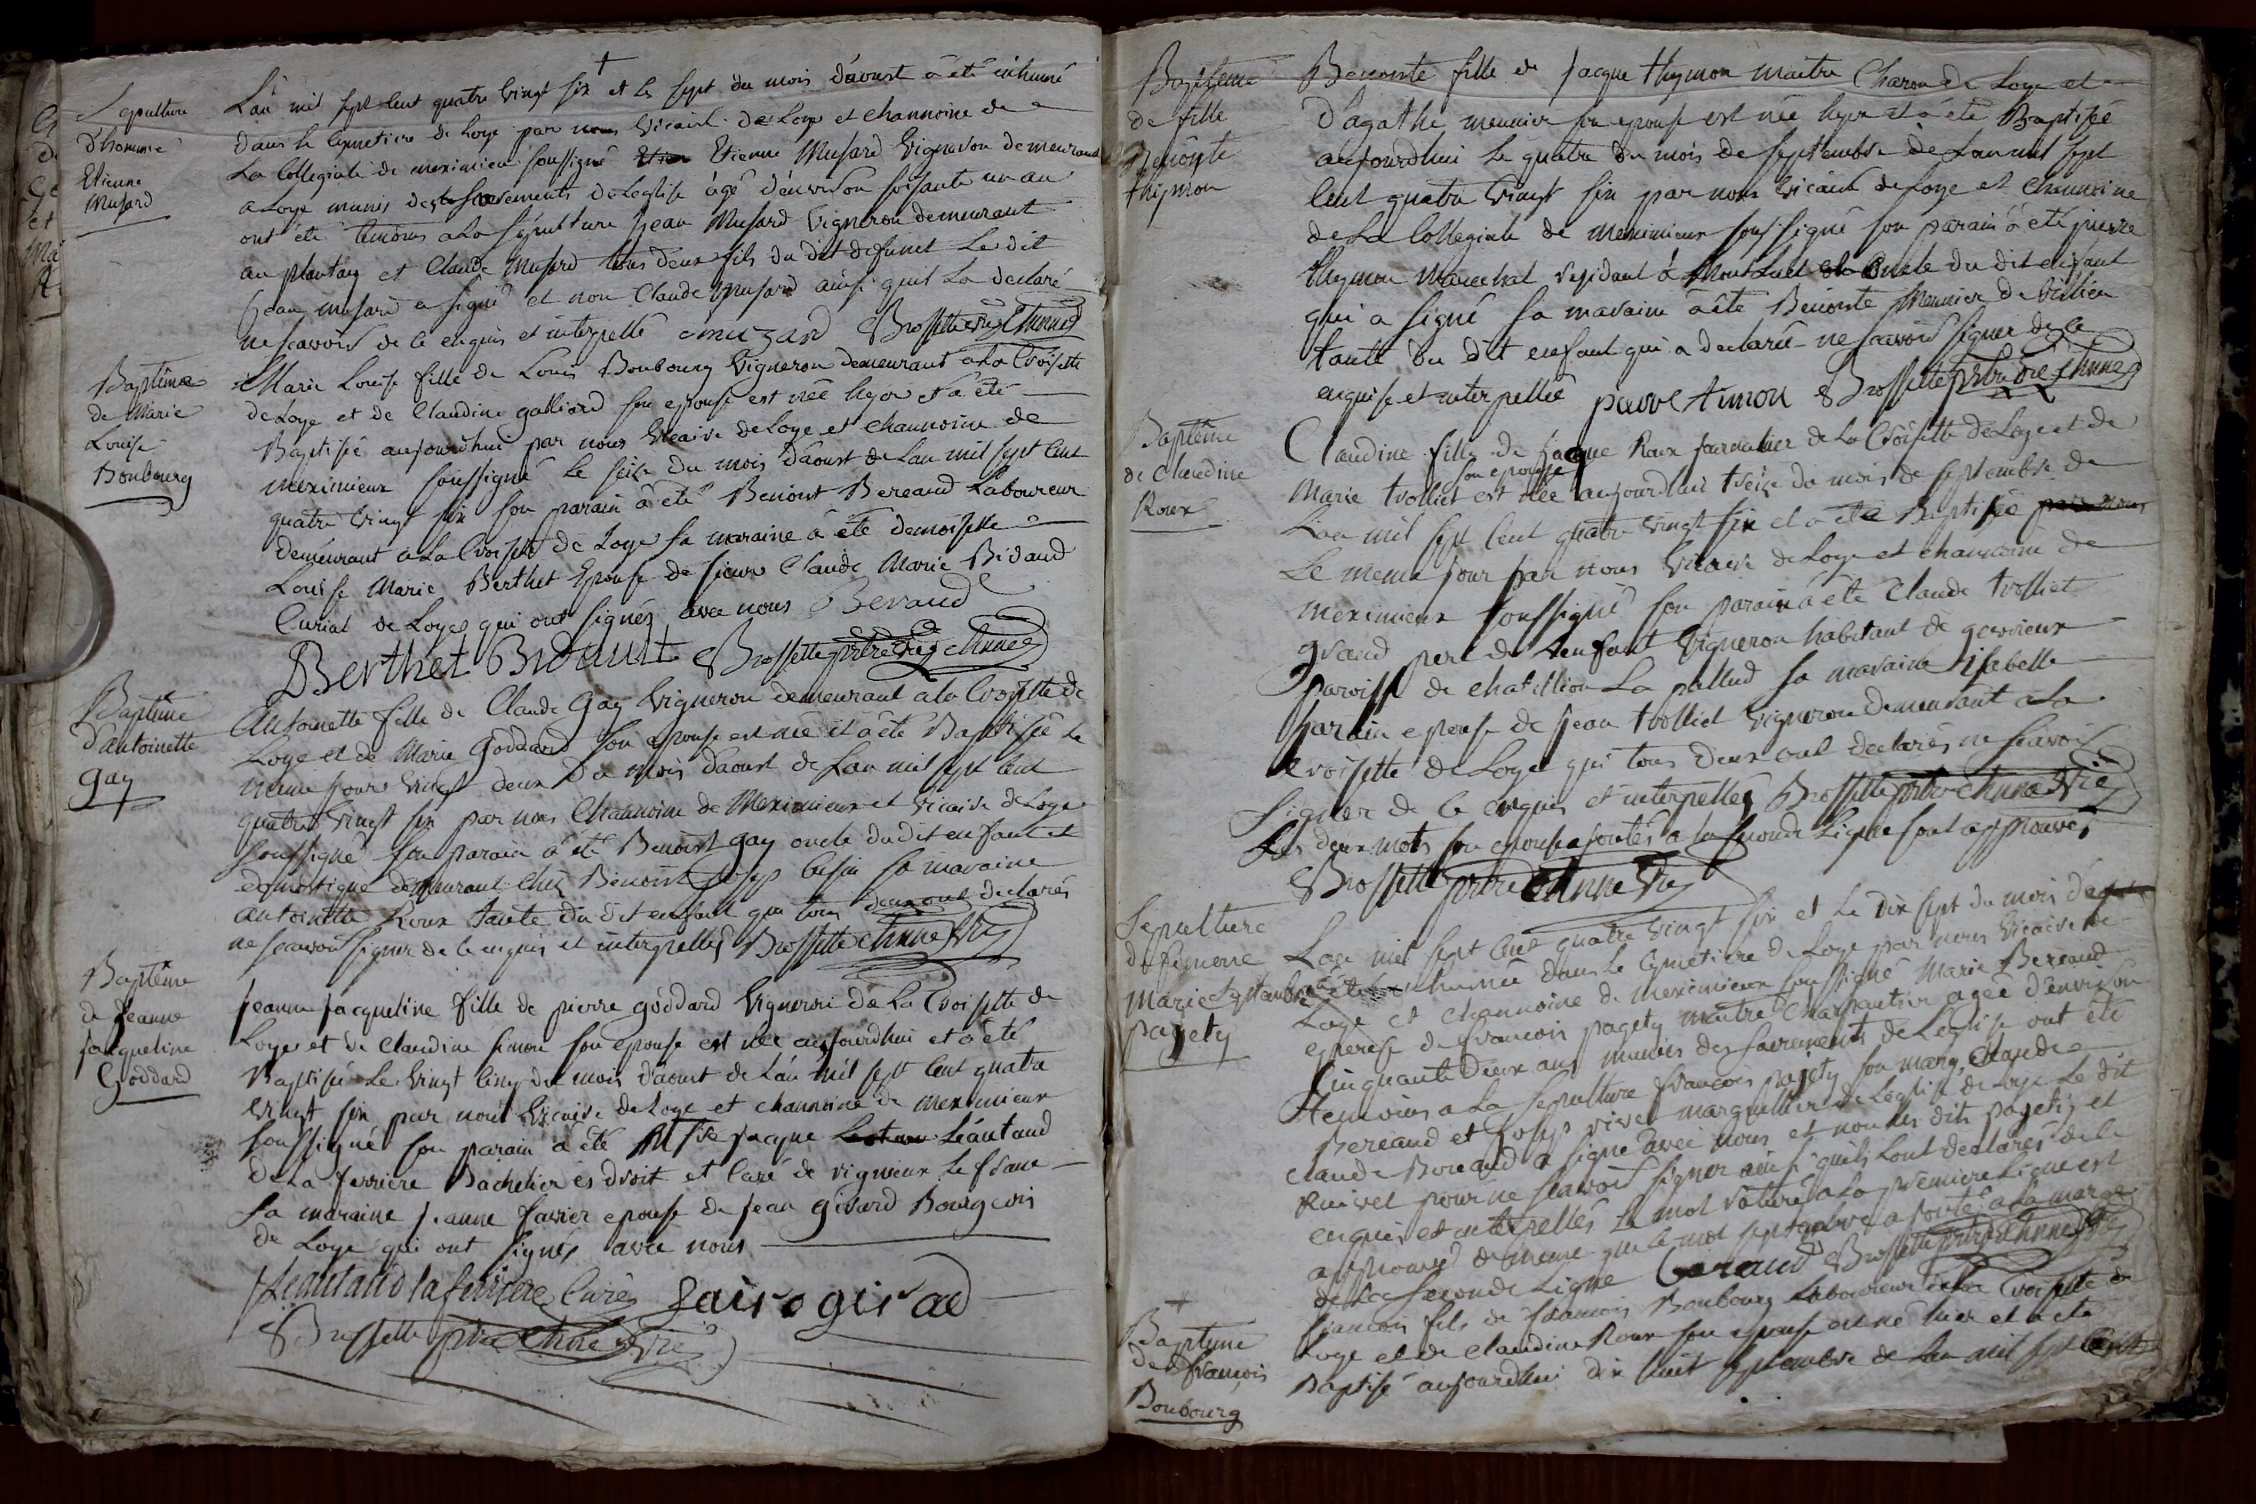 Sepulture
d'homme
Etienne
Musard
L'an mil sept cent quatre vingt six et le sept du mois d'aoust a été inhumé
dans le cymetiere de Loye par nous vicaire de Loye et channoine de
La Collegiale de meximieux soussigné Etienne Musard vigneron demeurant
a Loye munis des sacrements de Leglise agé d'environ soisante un an
ont été temoins a La sepulture Jean Musard vigneron demeurant
au plantay et Claude Musard tous deux fils du dit defunct Le dit
Jean musard a signé et non Claude Musard ainsi quil La declaré
ne scavoir de ce enquis et interpellé J musard Brossette vic. channe
Baptême
de Marie
Louise
Bonbourg
Marie Louise fille de Louis Bonbourg vigneron demeurant a La Croisette
de Loye et de Claudine galliard son epouse est née hyer et a été
Baptisée aujourdhui par nous vicaire de Loye et channoine de
meximieux soussigné Le seise du mois d'aoust de Lan mil sept cent
quatre vingt six son parain a été Benoist Bereaud Laboureur
demeurant a La Croisette de Loye sa maraine a été demoiselle
Louise Marie Berthet Epouse de sieur Claude Marie Bidaud
Curial de Loyes qui ont signés avec nous Beraud
Berthet Bidault Brossette pretre vic. channe
Baptême
d'antoinette
gay
Antoinette fille de Claude Gay vigneron demeurant a la Croisette de
Loye et de Marie Goddard son epouse est née et a été Baptisée Le
meme jour vingt deux du mois d'aoust de Lan mil sept cent
quatre vingt six par nous channoine de Meximieux et vicaire de Loye
soussigné son parain a été Benoist gay oncle du dit enfant et
domestique demeurant chez Benoist sa maraine
antoinette Roux tante du dit enfant qui tous deux ont declarés
ne scavoir signer de ce enquis et interpellés Brossette channe vic.
Baptême
de Jeanne
jacqueline
Goddard
Jeanne Jacqueline fille de pierre goddard vigneron de La Croisette de
Loye et de Claudine simon son epouse est née aujourdhui et a été
Baptisée Le vingt cinq du mois d'aoust de Lan mil sept cent quatre
vingt six par nous vicaire de Loye et channoine de meximieux
soussigné son parain a été Mre Jacque Léautaud
de La ferriere Bachelier es droit et Curé de vigneux Le franc
sa maraine Jeanne favier epouse de Jean girard Bourgeois
de Loye qui ont signés avec nous
Léautaud la ferriere Curé
Brossette pretre channe vic.
Baptême
de fille
Benoiste
thymon
Benoiste fille de Jacque thymon maitre Charon de Loye et
d'agathe meunier son epouse est née hyer et a été Baptisée
aujourdhui Le quatre du mois de septembre de Lan mil sept
cent quatre vingt six par nous vicaire de Loye et channoine
de La Collegiale de meximieux soussigné son parain a été pierre
thymon marechal residant a Montluel oncle du dit enfant
qui a signé sa maraine a été Benoiste Meunier de
tante du dit enfant qui a declarée ne scavoir signer de ce
enquise et interpellée Brossette pretre vic channe
Baptême
de Claudine
Roux
Claudine fille de Jacque Roux de La Croisette de Loye et de
son epouse
Marie trolliet est née aujourdhui treize du mois de septembre de
Lan mil sept cent quatre vingt six et a été Baptisée par nous
Le meme jour par nous vicaire de Loye et channoine de
meximieux soussigné son parain a été Claude trolliet
grand pere de Lenfant vigneron habitant de gevrieux
paroisse de chatillion La pallud sa maraine isabelle
epouse de Jean trolliet vigneron demeurant a La
croisette de Loye qui tous deux ont declarés ne scavoir
signer de ce enquis et interpellés Brossette pretre channe vic
Les deux mots son epouse ajoutés a la seconde Ligne sont approuvés
Brossette pretre channe vic
Sepulture
de femme
Marie
pagety
Lan mil sept cent quatre vingt six et Le dix sept du mois de
septembre a été inhumée dans Le cymetiere de Loye par nous vicaire de
Loye et channoine de meximieux soussigné Marie Bereaud
epouse de francois pagety maitre charpentier agée d'environ
cinquante deux ans munie des sacrements de Leglise ont été
temoins a La sepulture francois pagety son mary, Claude
Bereaud et Josep rivet marguillier de Leglise de Loye Le dit
Claude Bereaud a signé avec nous et non les dits pagety et
rivet pour ne scavoir signer ainsi quils Lont declarés de ce
enquis et interpellés Le mot raturé a La premiere Ligne est
approuvé de meme que Le mot septembre ajouté a La marge
de La seconde Ligne Beraud Brossette pretre channe vic
Baptême
de francois
Bonbourg
francois fils de francois Bonbourg Laboureur de La Croisette de
Loye et de Claudine Roux son epouse est né hier et a été
Baptisé aujourdhui dix huit septembre de Lan mil sept cent